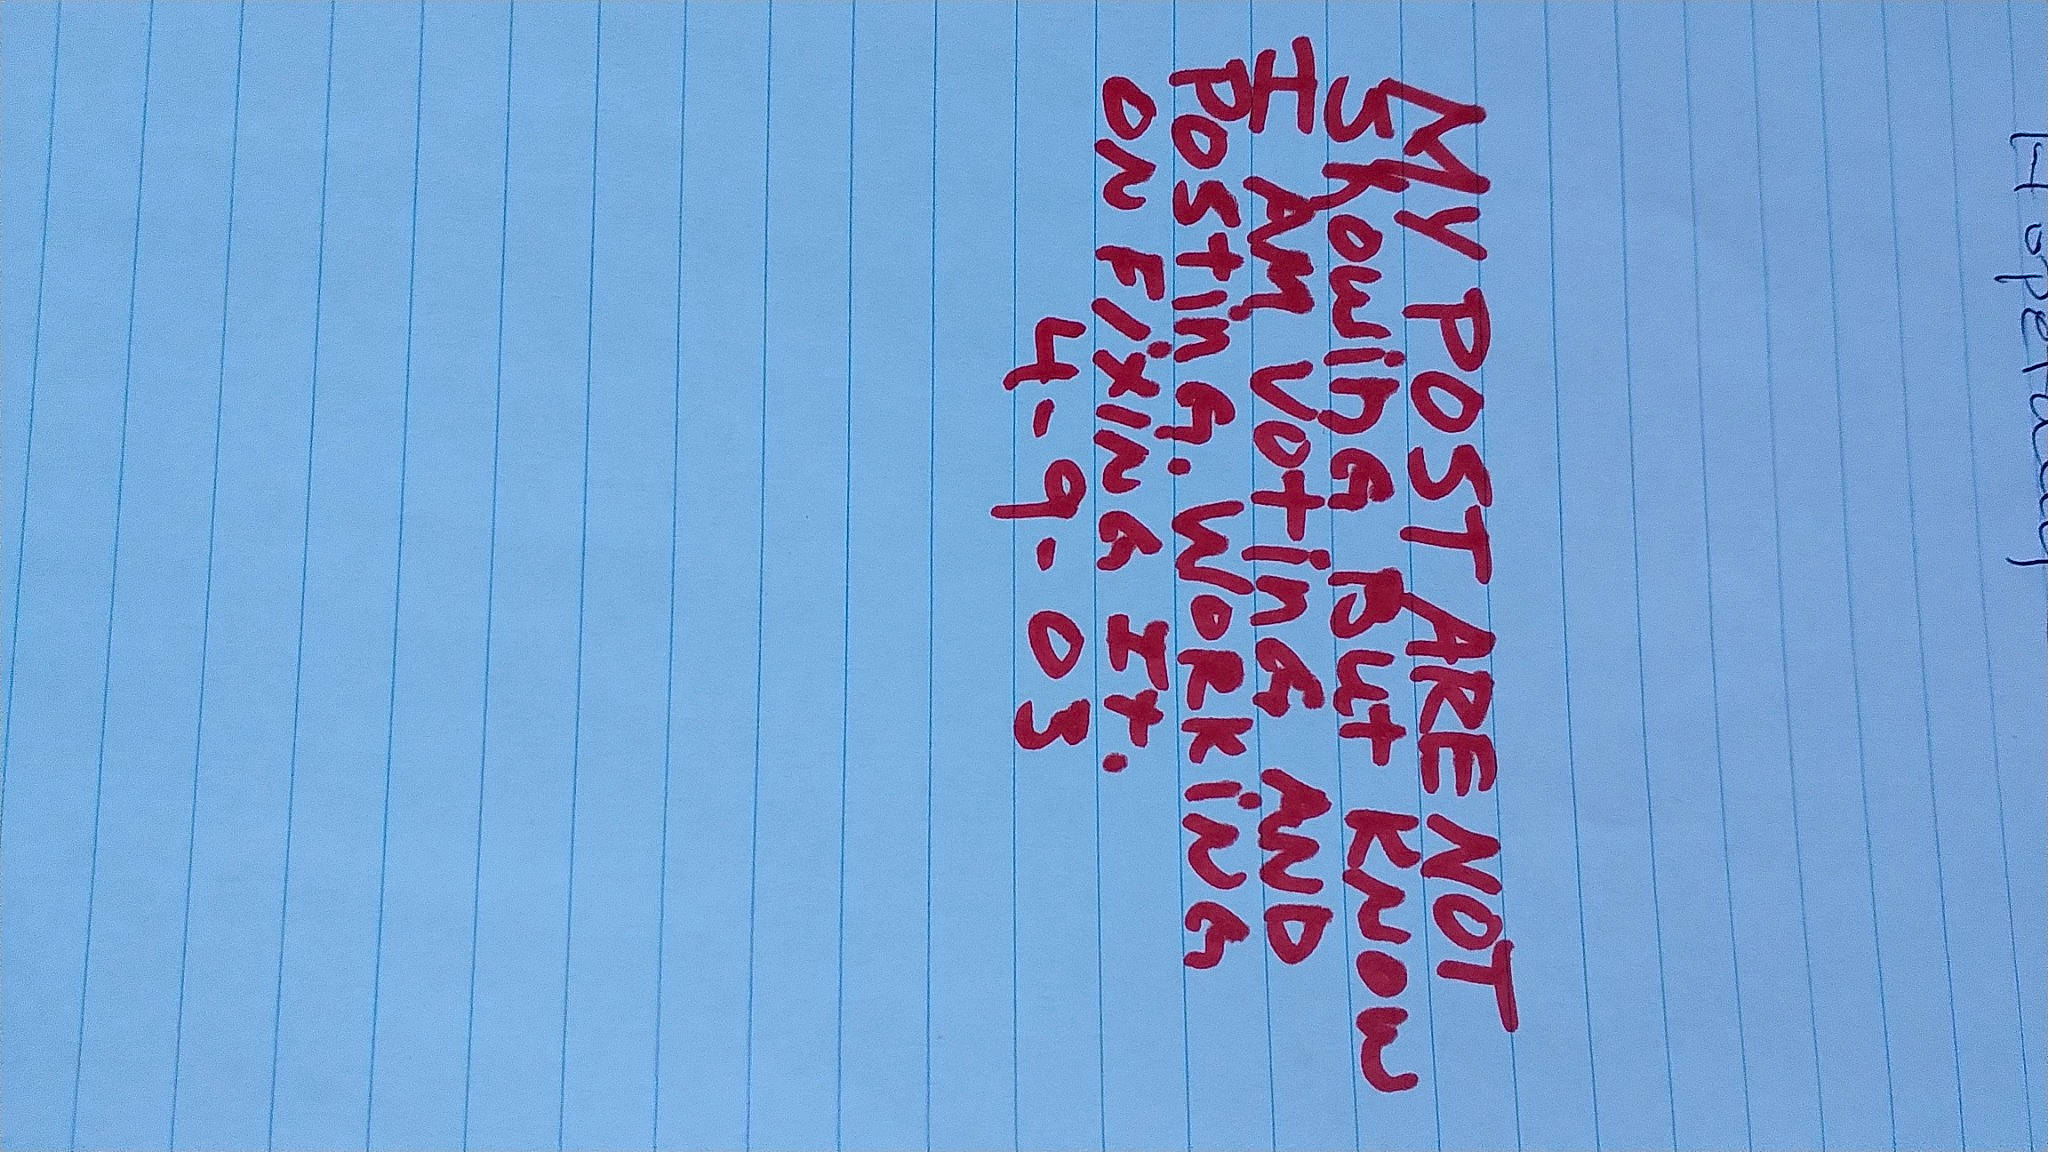 Hopefully
MY POST ARE NOT
Showing But Know
I Am Voting AND
Posting. WORKING
ON FIXING It.
4-9-03